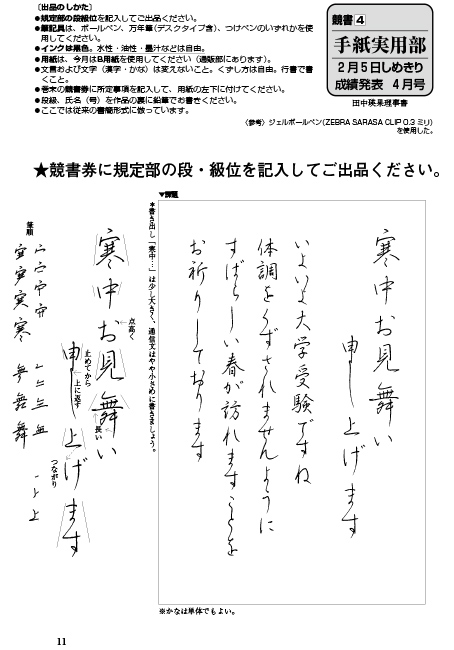 〔出品のしかた〕
●規定部の段級位を記入してご出品ください。
●筆記具は、ボールペン、万年筆(デスクタイプ含)、つけペンのいずれかを使用してください。
●インクは黒色。水性・油性・墨汁などは自由。
●用紙は、今月はB用紙を使用してください(通販部にあります)。
●文言および文字(漢字・かな)は変えないこと。くずし方は自由。行書で書くこと。
●巻末の競書券に所定事項を記入して、用紙の左下に付けてください。
●段級、氏名(号)を作品の裏に鉛筆でお書きください。
●ここでは従来の書簡形式に倣っています。
競書4
手紙実用部
2月5日しめきり
成績発表 4月号
田中瑛泉理事書
〈参考〉ジェルボールペン(ZEBRA SARASA CLIP 0.3 ミリ)
を使用した。
★競書券に規定部の段・級位を記入してご出品ください。
▼課題
寒中お見舞い
申し上げます
いよいよ大学受験ですね
体調をくずされませんように
すばらしい春が訪れますことを
お祈りしております
※かなは単体でもよい。
＊書き出し「寒中…」は少し大きく、通信文はやや小さめに書きましょう。
寒中お見舞い
点高く
長い
申し上げます
止めてから
上に返す
つながり
筆順
寒
舞
上
11